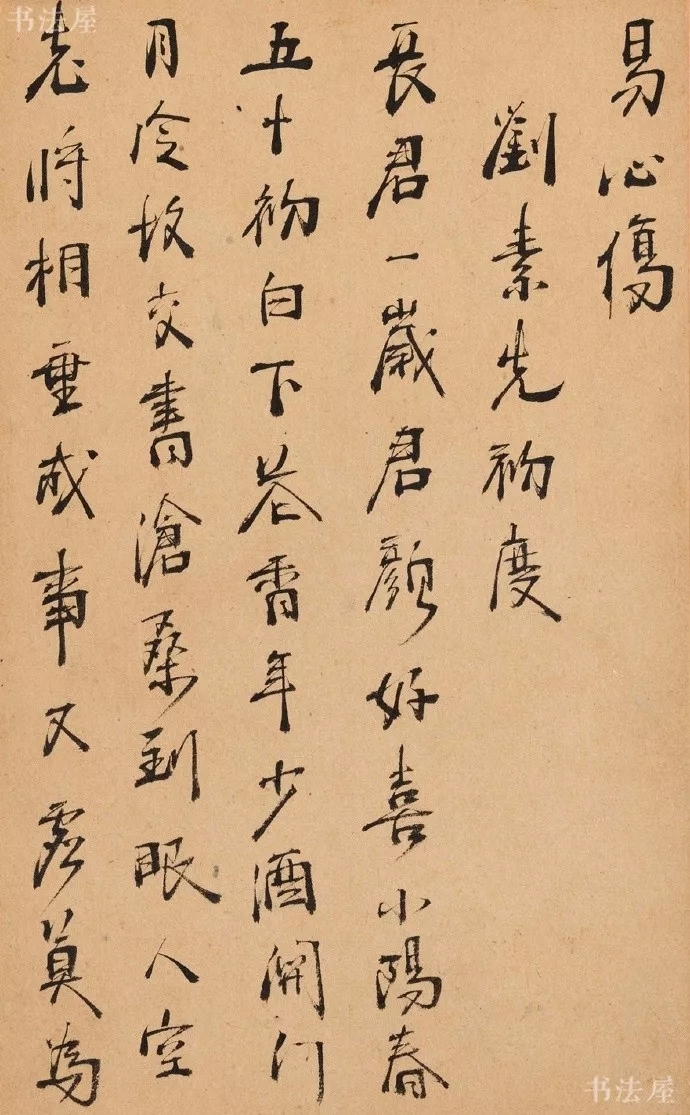 易心傷
劉素先初度
長君一歲君顏好喜小陽春
五十初白下花香年少酒開門
月冷故交書滄桑到眼人空
老將相垂成事又虛莫為
书法屋
书法屋